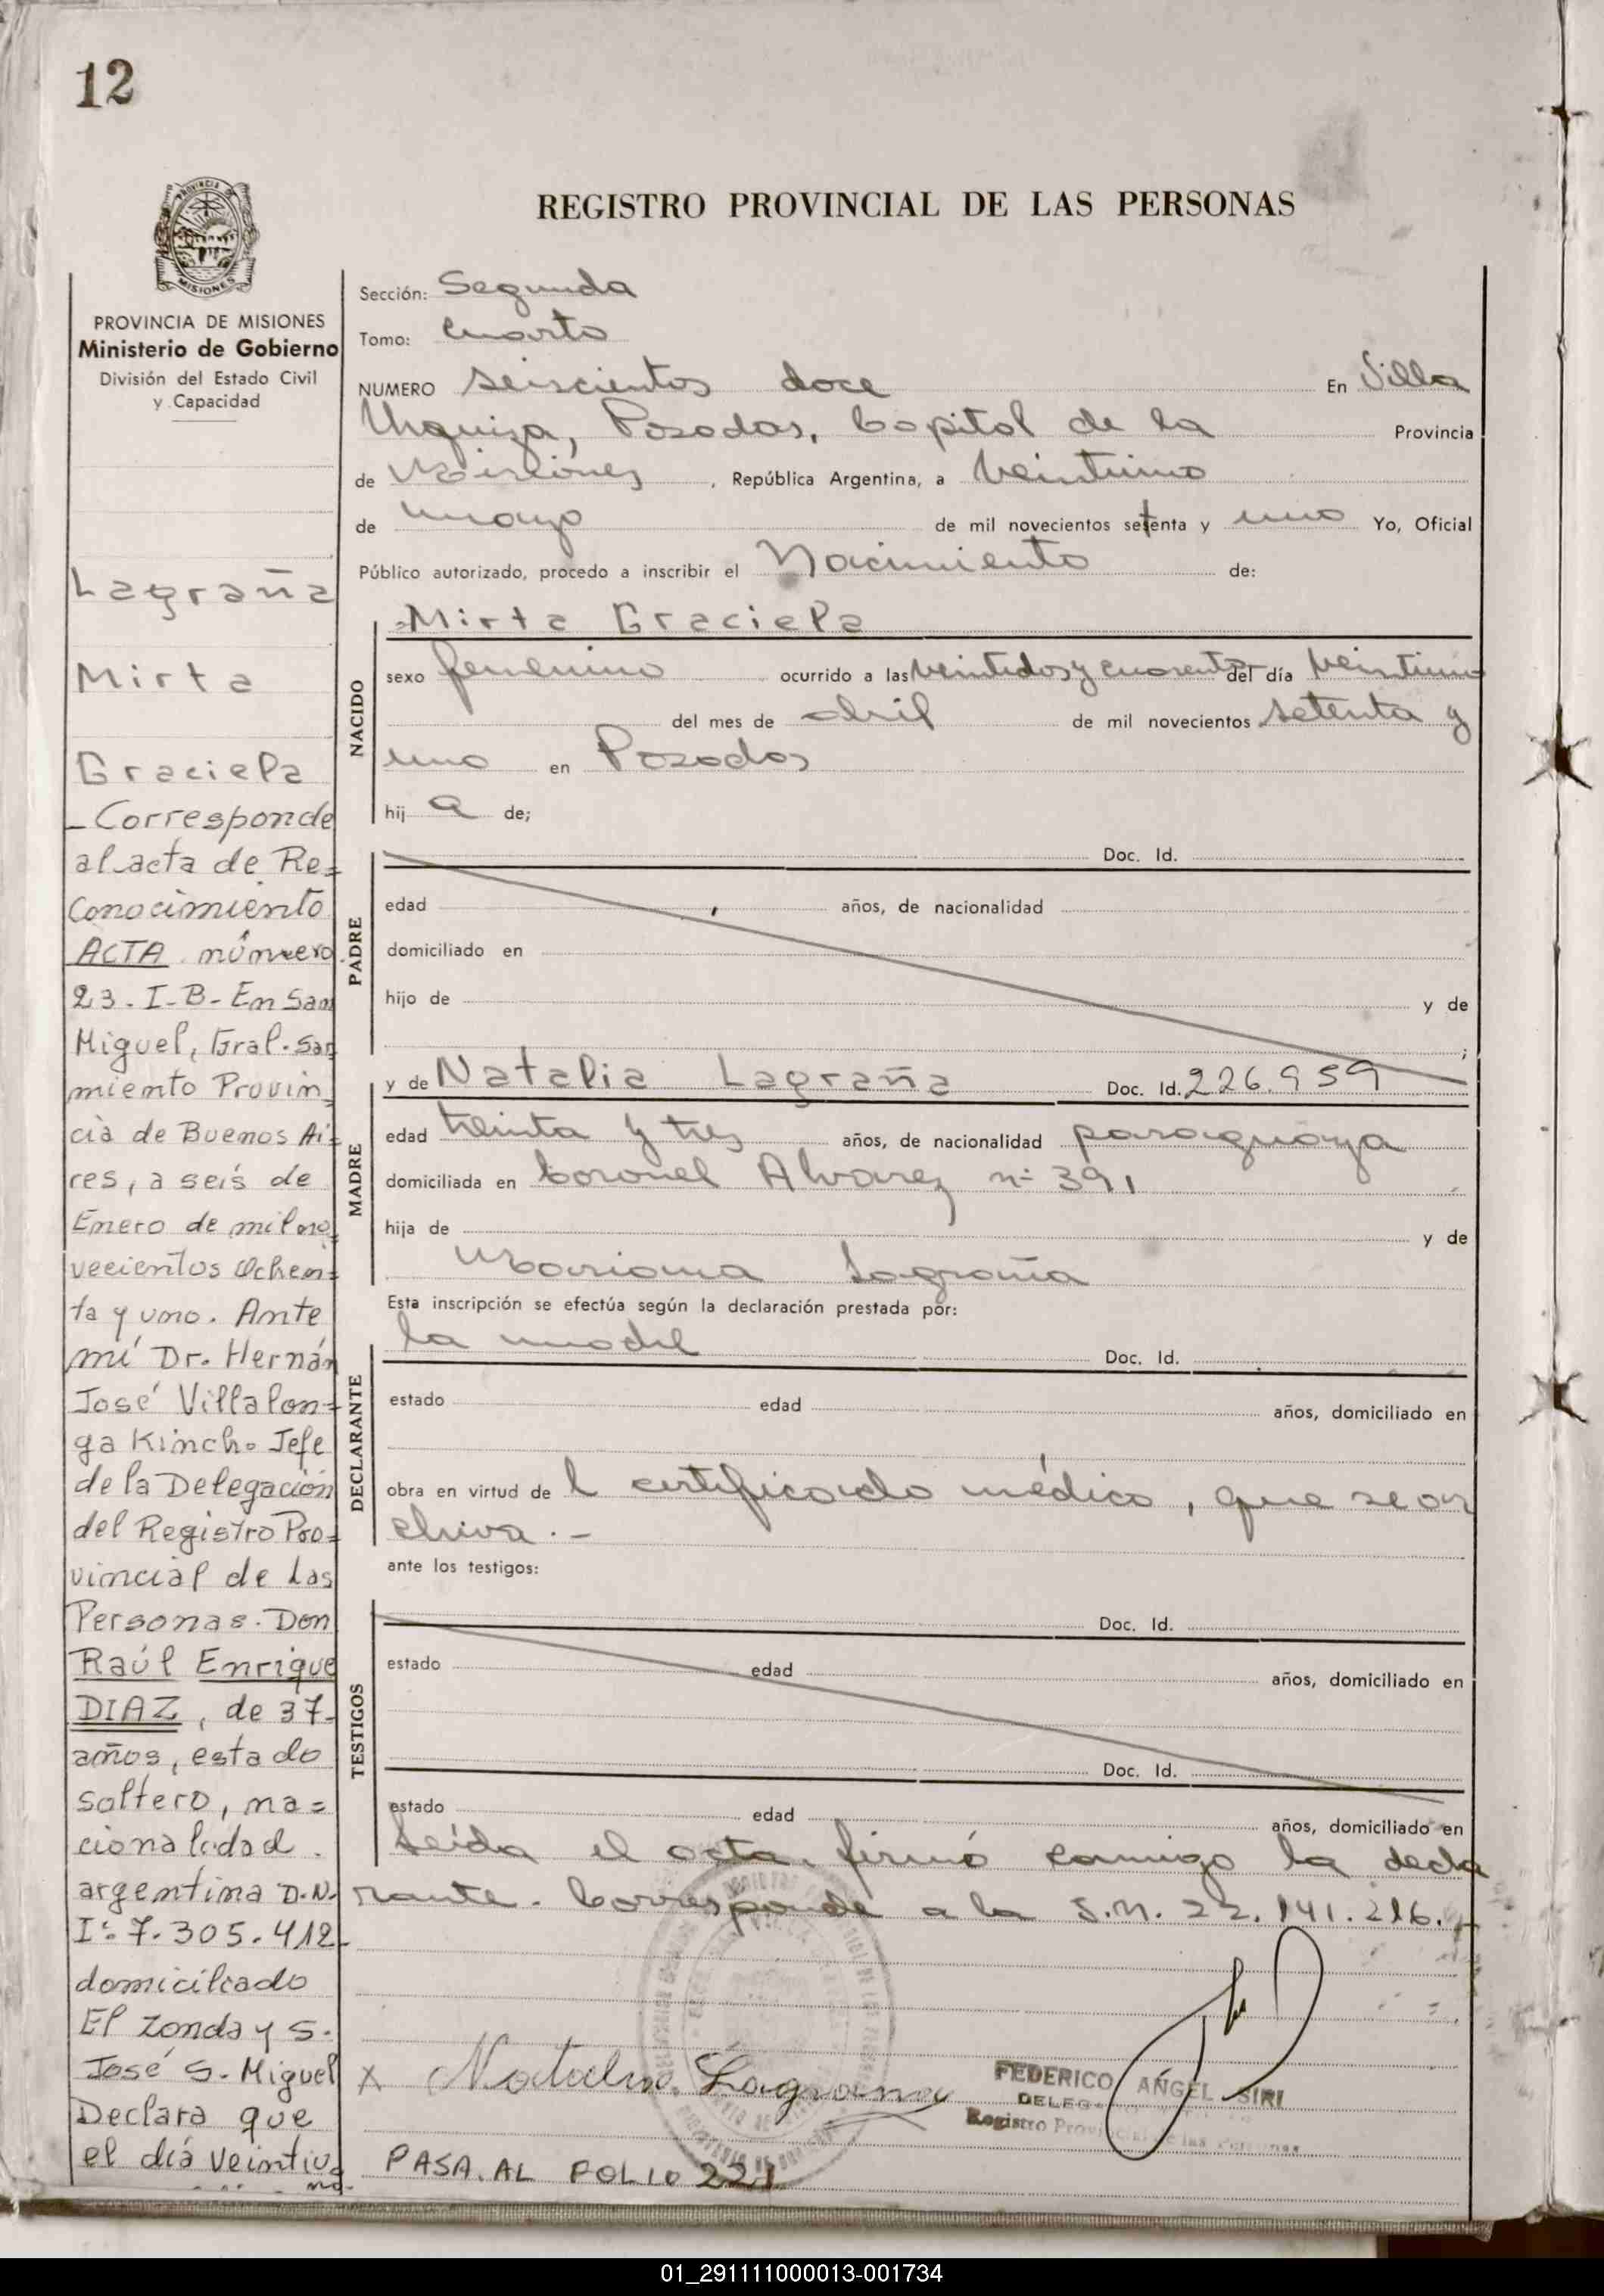 12
REGISTRO PROVINCIAL DE LAS PERSONAS
MISIONES
PROVINCIA DE MISIONES
Ministerio de Gobierno
División del Estado Civil
y Capacidad
Lagraña
Mirta
Graciela
- Corresponde
al acta de Re=
conocimiento
ACTA número
23. I-B- En San
Miguel, Gral. Sar
miento Provin
cia de Buenos Ai=
res, a seis de
Enero de mil no
vecientos ochen=
ta y uno. Ante
mí Dr. Hernán
José Villalon=
ga Kincho Jefe
de la Delegación
del Registro Pro=
vincial de Las
Personas. Don
Raúl Enrique
DIAZ, de 37-
años, estado
soltero, na=
cionalidad
argentina D.N.
I: 7.305.412-
domiciliado
El Zonda y S.
José S. Miguel
Declara que
el día veintiu
no-
Sección: Segunda
Tomo: Cuarto
NUMERO seiscientos doce En Villa
Urquiza, Posadas, Capital de la Provincia
de Misiones, República Argentina, a veintiuno
de mayo de mil novecientos setenta y uno Yo, Oficial
Público autorizado, procedo a inscribir el Nacimiento de:
NACIDO
=Mirta Graciela
sexo femenino ocurrido a las veintidos y cuarenta del día veintiuno
del mes de abril de mil novecientos setenta y
uno en Posadas
hij a de;
PADRE
Doc. Id.
edad años, de nacionalidad
domiciliado en
hijo de y de
;
MADRE
y de Natalia Lagraña Doc. Id. 226.959
edad treinta y tres años, de nacionalidad paraguaya
domiciliada en Coronel Alvarez n° 391
hija de y de
Mariana Lagraña
Esta inscripción se efectúa según la declaración prestada por:
DECLARANTE
la madre Doc. Id.
estado edad años, domiciliado en
obra en virtud de l certificado médico, que se ar
chiva.-
ante los testigos:
TESTIGOS
Doc. Id.
estado edad años, domiciliado en
Doc. Id.
estado edad años, domiciliado en
Leída el acta, firmó conmigo la decla
rante. Corresponde a la S.M. 22.141.216.
x Natalia Lagrana
FEDERICO ÁNGEL SIRI
Registro Provincial de las Personas
PASA AL FOLIO 221
01_291111000013-001734